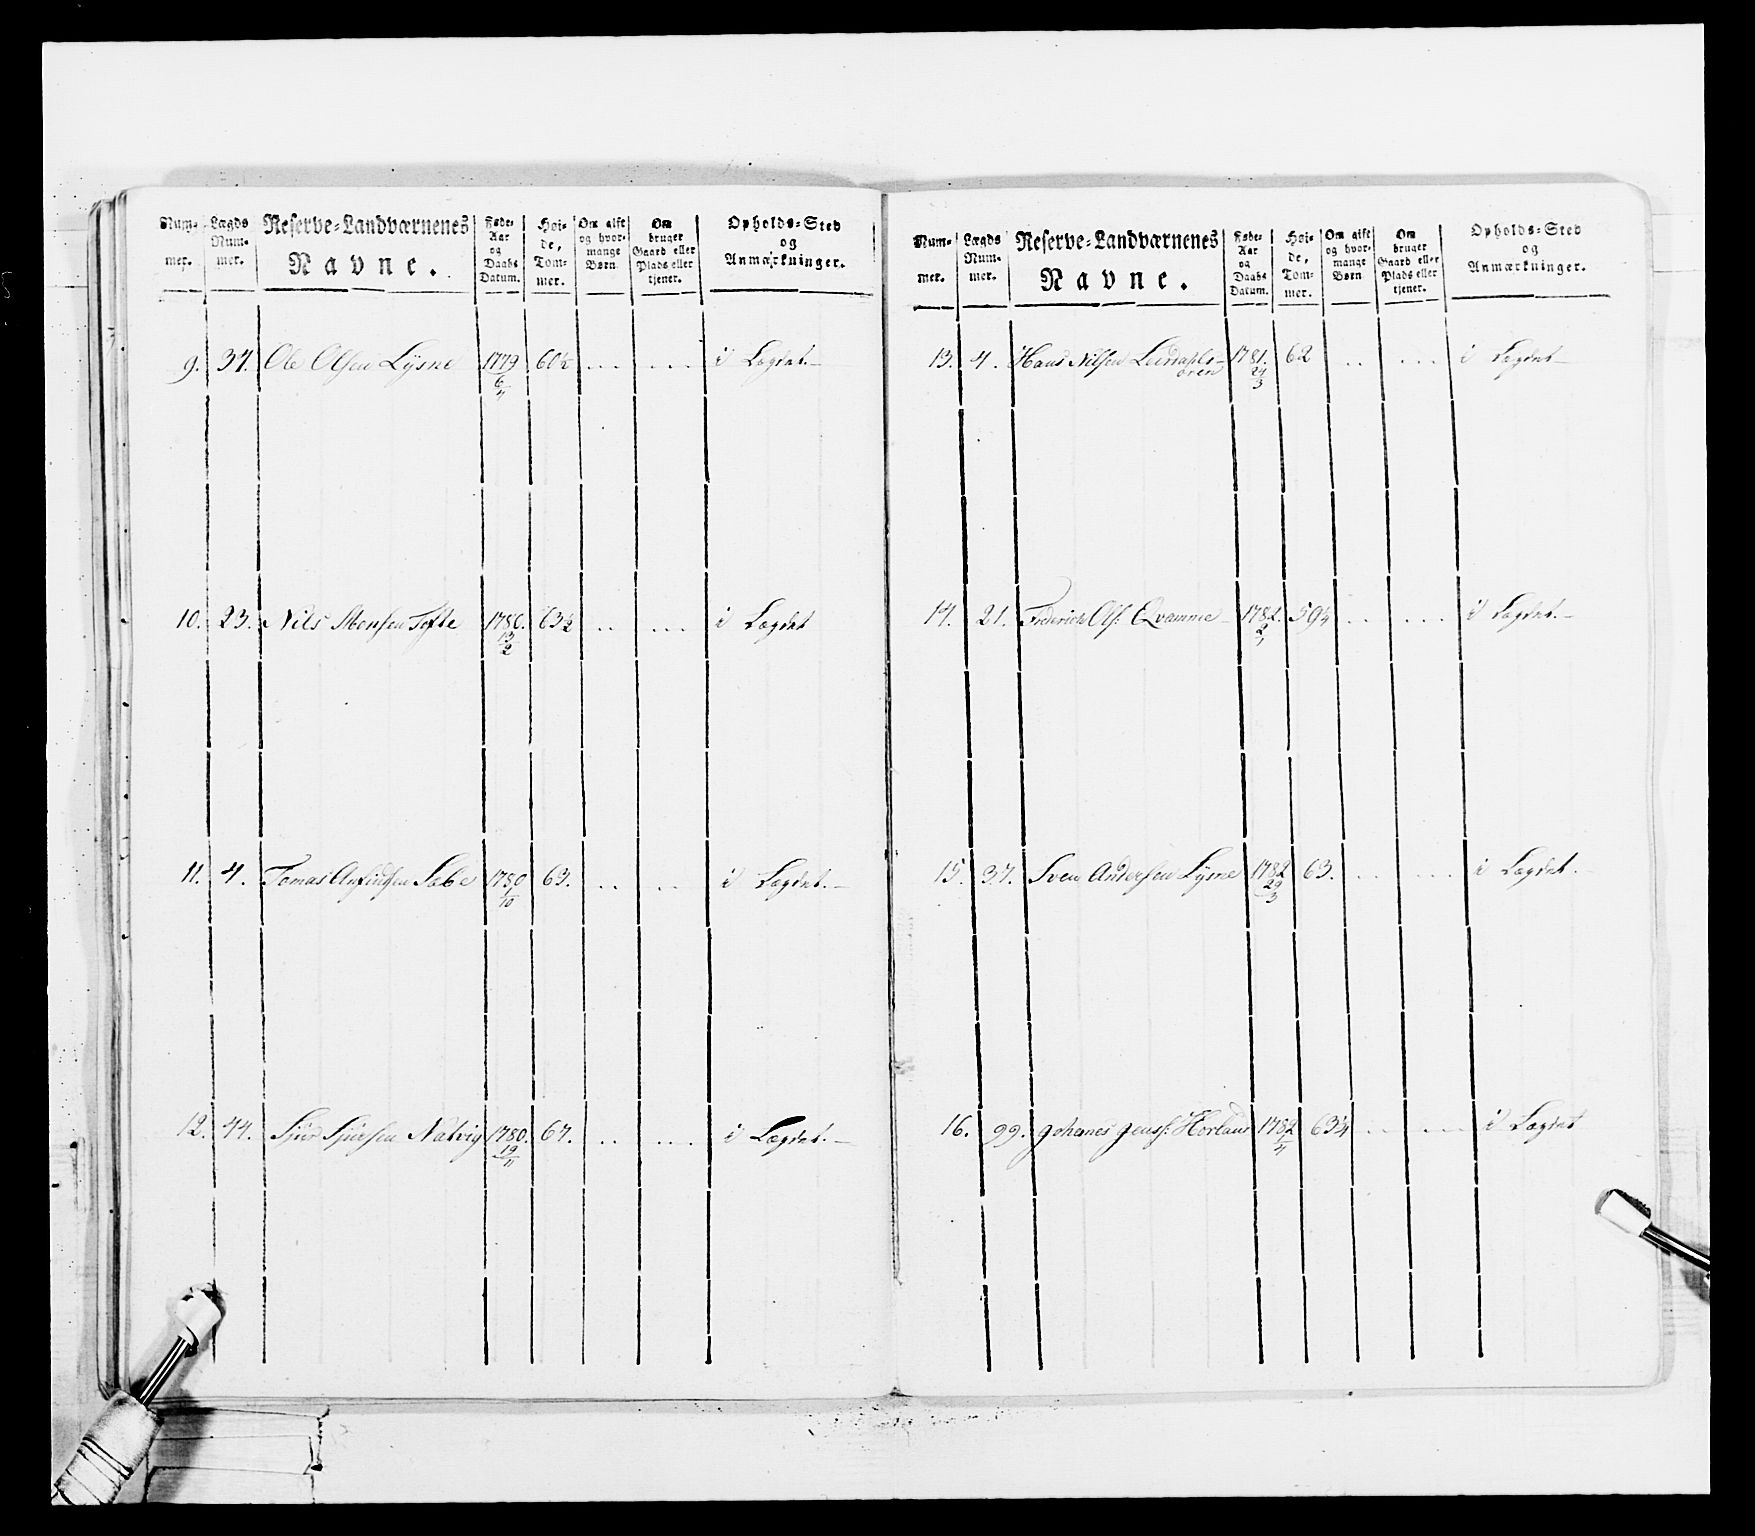 Num-
mer.
Lægds
Num-
mer.
Reserve-Landværnenes
Navne.
Føde-
Aar
og
Daabs
Datum.
Høi-
de,
Tom-
mer.
Om gift
og hvor-
mange
Børn.
Om
bruger
Gaard eller
Plads eller
tjener.
Opholds-Sted
og
Anmærkninger.
9. 37. Ole Olsen Lysne 1779 60½ .. ... i Lægdet.
6/4
10. 23. Nils Monsen Tofte 1780. 63½ .. ... i Lægdet
13/2
11. 4. Tomas Anfindsen Sæbe 1780 63. .. .. i Lægdet.
1/10
12. 44. Sjur Sjursen Natvig 1780. 67. .. ... i Lægdet.
19/11
Num-
mer.
Lægds
Num-
mer.
Reserve-Landværnenes
Navne.
Føde-
Aar
og
Daabs
Datum.
Høi-
de,
Tom-
mer.
Om gift
og hvor-
mange
Børn
Om
bruger
Gaard eller
Plads eller
tjener.
Opholds-Sted
og
Anmærkninger.
13. 4. Hans Nilsen Leirdahls- 1781. 62 .. ... i Lægdet
ören 24/3
14. 21. Friderich Ols: Qvamme 1782. 59¼ ... ... i Lægdet.
2/1
15. 37. Sven Andersen Lysne 1782 63. ... ... i Lægdet.
29/3
16. 99. Johanes Jenss: Horland 1782 63¼ .. ... i Lægdet
1/4